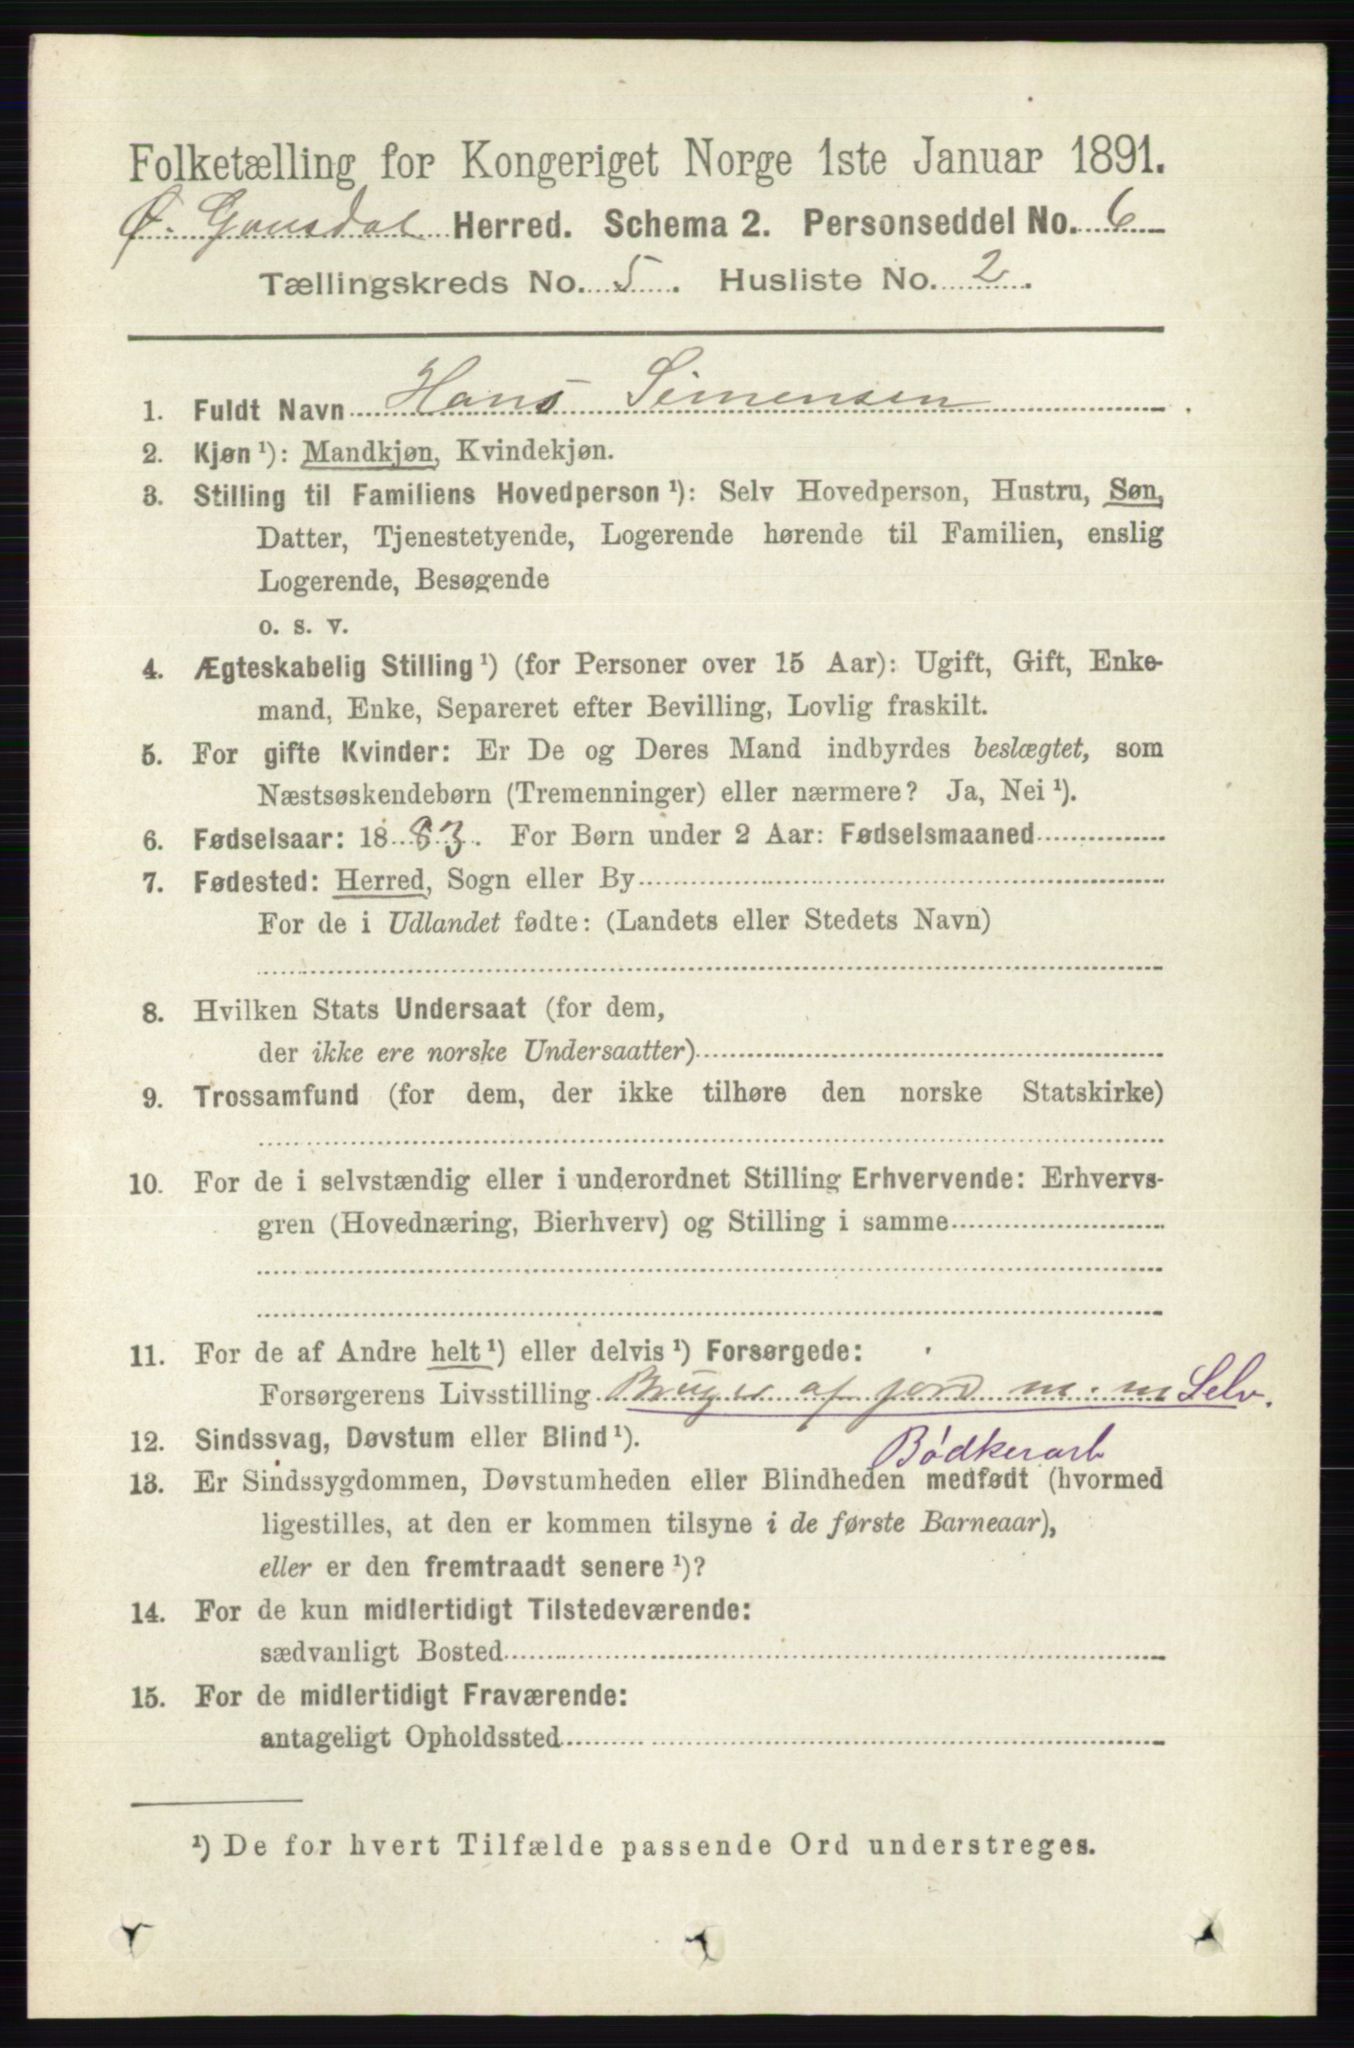 Folketælling for Kongeriget Norge 1ste Januar 1891.
Ø. Gausdal Herred. Schema 2. Personseddel No. 6
Tællingskreds No. 5. Husliste No. 2.
1. Fuldt Navn Hans Simensen
2. Kjøn ¹): Mandkjøn, Kvindekjøn.
3. Stilling til Familiens Hovedperson ¹): Selv Hovedperson, Hustru, Søn,
Datter, Tjenestetyende, Logerende hørende til Familien, enslig
Logerende, Besøgende
o. s. v.
4. Ægteskabelig Stilling ¹) (for Personer over 15 Aar): Ugift, Gift, Enke-
mand, Enke, Separeret efter Bevilling, Lovlig fraskilt.
5. For gifte Kvinder: Er De og Deres Mand indbyrdes beslægtet, som
Næstsøskendebørn (Tremenninger) eller nærmere? Ja, Nei ¹).
6. Fødselsaar: 1883. For Børn under 2 Aar: Fødselsmaaned
7. Fødested: Herred, Sogn eller By
For de i Udlandet fødte: (Landets eller Stedets Navn)
8. Hvilken Stats Undersaat (for dem,
der ikke ere norske Undersaatter)
9. Trossamfund (for dem, der ikke tilhøre den norske Statskirke)
10. For de i selvstændig eller i underordnet Stilling Erhvervende: Erhvervs-
gren (Hovednæring, Bierhverv) og Stilling i samme
11. For de af Andre helt ¹) eller delvis ¹) Forsørgede:
Forsørgerens Livsstilling Bruger af jord m. m Selv.
Bødkerarb
12. Sindssvag, Døvstum eller Blind ¹).
13. Er Sindssygdommen, Døvstumheden eller Blindheden medfødt (hvormed
ligestilles, at den er kommen tilsyne i de første Barneaar),
eller er den fremtraadt senere ¹)?
14. For de kun midlertidigt Tilstedeværende:
sædvanligt Bosted
15. For de midlertidigt Fraværende:
antageligt Opholdssted
¹) De for hvert Tilfælde passende Ord understreges.